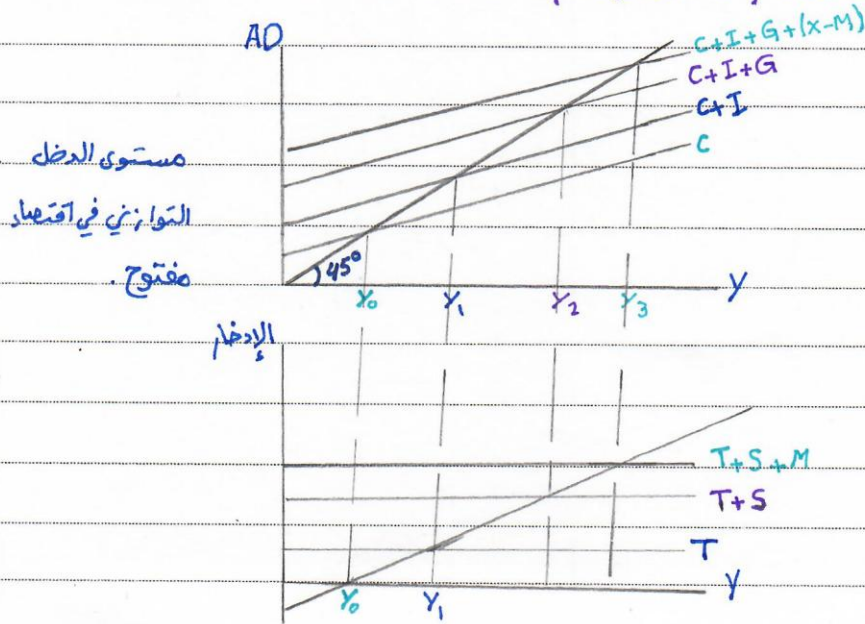 AD
C+I+G+(X-M)
C+I+G
C+I
C
مستوى الدخل
التوازني في اقتصاد
مفتوح .
45°
Y₀
Y₁
Y₂
Y₃
Y
الإدخار
T+S+M
T+S
T
Y₀
Y₁
Y